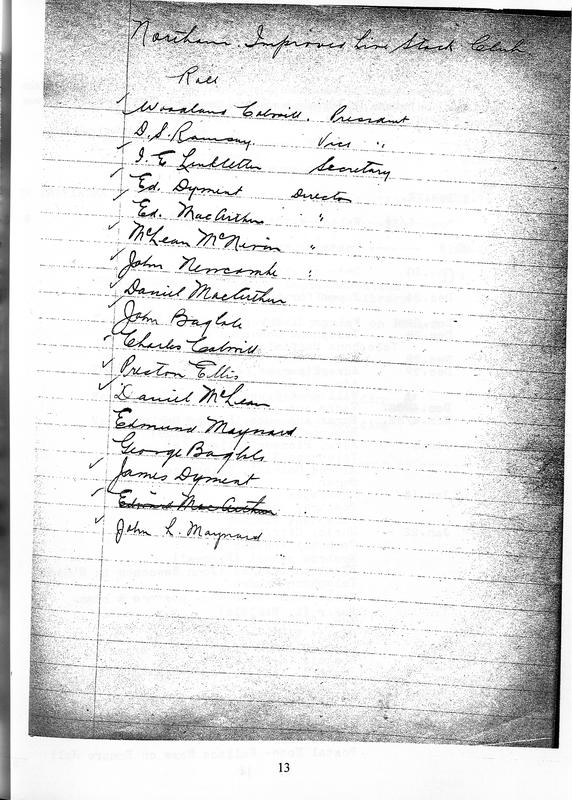 Northam Improved Live Stock Club
Roll
✓ Woodland Colwill. President
✓ D. S. Ramsay. Vice "
✓ I. E. Lendleton Secretary
✓ Ed. Dyment Director
✓ Ed. MacArthur "
McLean McNevin "
✓ John Newcombe "
✓ Daniel MacArthur
✓ John Baglole
Charles Colwill
✓ Preston Ellis
✓ Daniel McLean
Edmund Maynard
George Baglole
✓ James Dyment
✓ Edward MacArthur
✓ John L. Maynard
13